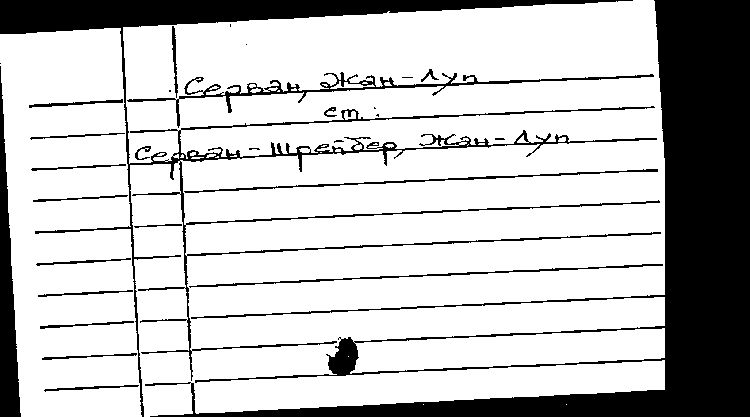 Серван, Жан-Луп
ст.:
Серван-Шрейбер, Жан-Луп